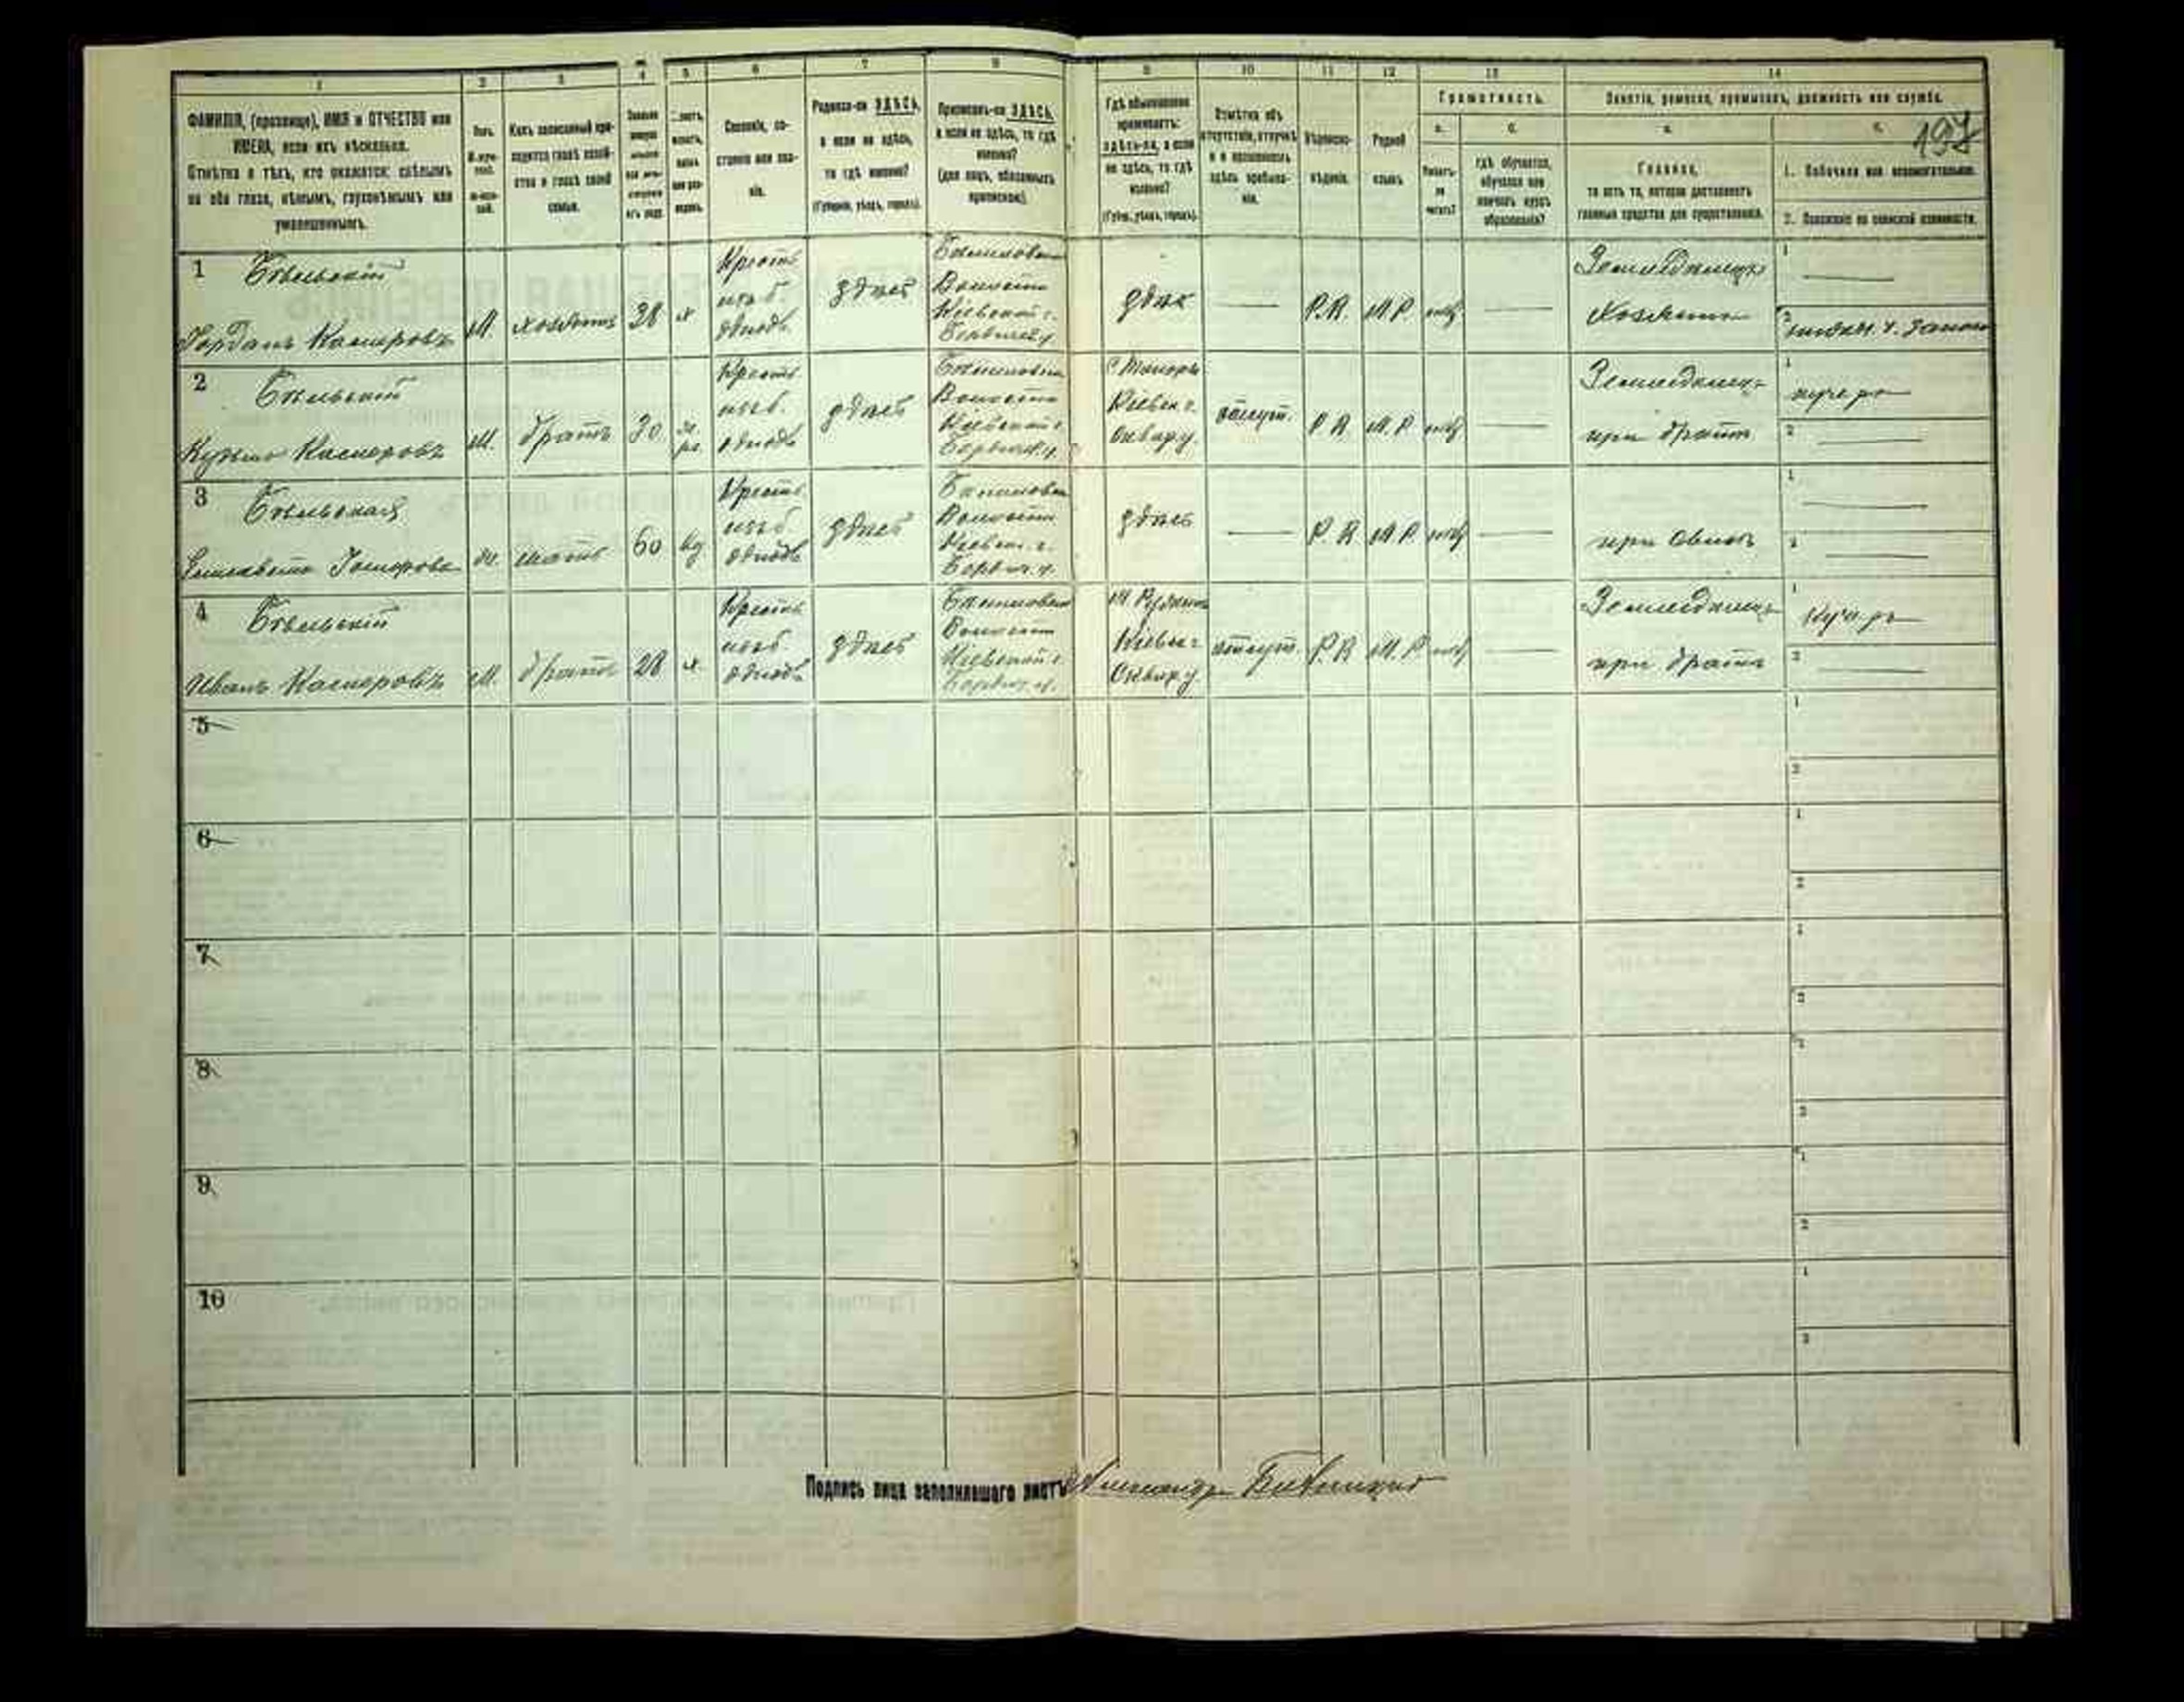 1 2 3 4 5 6 7 8 9 10 11 12 13 14
ФАМИЛІЯ, (прозвище), ИМЯ и ОТЧЕСТВО или
ИМЕНА, если ихъ нѣсколько.
Отмѣтка о тѣхъ, кто окажется: слѣпымъ
на оба глаза, нѣмымъ, глухонѣмымъ или
умалишеннымъ.
Полъ.
Какъ записанный при-
ходится главѣ хозяй-
ства и главѣ своей
семьи.
Сословіе, со-
стояніе или зва-
ніе.
Родился-ли ЗДѢСЬ,
а если не здѣсь,
то гдѣ именно?
(Губернія, уѣздъ, городъ).
Приписанъ-ли ЗДѢСЬ,
а если не здѣсь, то гдѣ
именно?
(для лицъ, обязанныхъ
припискою).
Гдѣ обыкновенно
проживаетъ:
здѣсь-ли, а если
не здѣсь, то гдѣ
именно?
(Губ., уѣздъ, городъ).
Отмѣтка объ
отсутствіи, отлучкѣ
и о временномъ
здѣсь пребыва-
ніи.
Вѣроиспо-
вѣданіе.
Родной
языкъ.
Грамотность.
а. б.
Умѣетъ-
ли
читать?
гдѣ обучается,
обучался или
кончилъ курсъ
образованія?
Занятіе, ремесло, промыселъ, должность или служба.
а. б.
197
Главное,
то есть то, которое доставляетъ
главныя средства для существованія.
1. Побочное или вспомогательное.
2. Положеніе по воинской повинности.
1 Бѣльскій
Іорданъ Касперовъ
М. хозяинъ 38 х
Крестъ
изъ б.
однодв.
здѣсь
Волости
Кіевской г.
Бердичев у.
здѣсь
— Р.К. М.Р. нѣтъ —
Земледѣлецъ
Хозяинъ
1 —
2
2 Бѣльскій
Кузьма Касперовъ
М. братъ 30
Крестъ
изъ б.
однодв
здѣсь
Волости
Кіевской г.
Бердичев. у.
Кіевск. г.
Сквир. у.
отсут. Р.К. М.Р нѣтъ —
Земледѣлец.
при братѣ
1 кучеръ
2 —
3 Бѣльская
Елисавета
ж. мать 60 вд
Крестъ
изъ б
однодв
здѣсь
Волости
Кіевск. г.
Бердич. у.
здѣсь
— Р.К М.Р. нѣтъ —
при сынѣ
1 —
2 —
4 Бѣльскій
Иванъ Касперовъ
М. братъ 28 х.
Крестъ
изъ б.
однодв
здѣсь
Волости
Кіевской г.
Бердич. у.
Кіевск г
Сквир. у
отсут. Р.К М.Р нѣтъ —
Земледѣлец.
при братѣ
1 Кучеръ
2 —
5 1
2
6 1
2
7 1
2
8 1
2
9 1
2
10 1
2
Подпись лица заполнившаго листъ Александръ